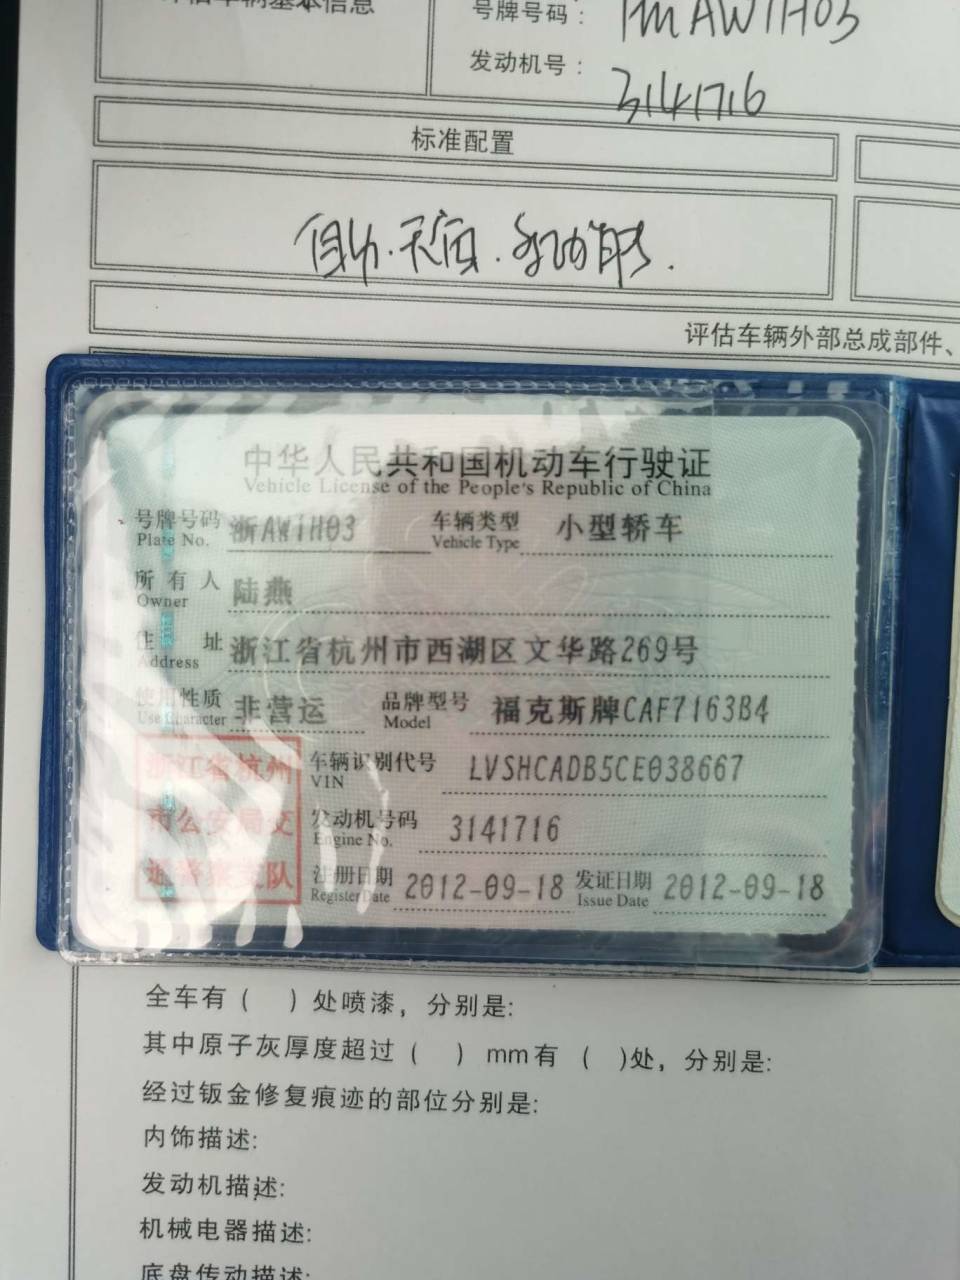 评估车辆基本信息
号牌号码： AW1H03
发动机号： 3141716
标准配置
自动.天窗.多功能.
评估车辆外部总成部件、
中华人民共和国机动车行驶证
Vehicle License of the People's Republic of China
号牌号码 浙AW1H03 车辆类型 小型轿车
Plate No. Vehicle Type
所有人 陆燕
Owner
住址 浙江省杭州市西湖区文华路269号
Address
使用性质 非营运 品牌型号 福克斯牌CAF7163B4
Use Character Model
浙江省杭州 车辆识别代号 LVSHCADB5CE038667
VIN
市公安局交 发动机号码 3141716
Engine No.
通警察支队 注册日期 2012-09-18 发证日期 2012-09-18
Register Date Issue Date
全车有（ ）处喷漆，分别是:
其中原子灰厚度超过（ ）mm有（ )处，分别是:
经过钣金修复痕迹的部位分别是:
内饰描述:
发动机描述:
机械电器描述:
底盘传动描述: